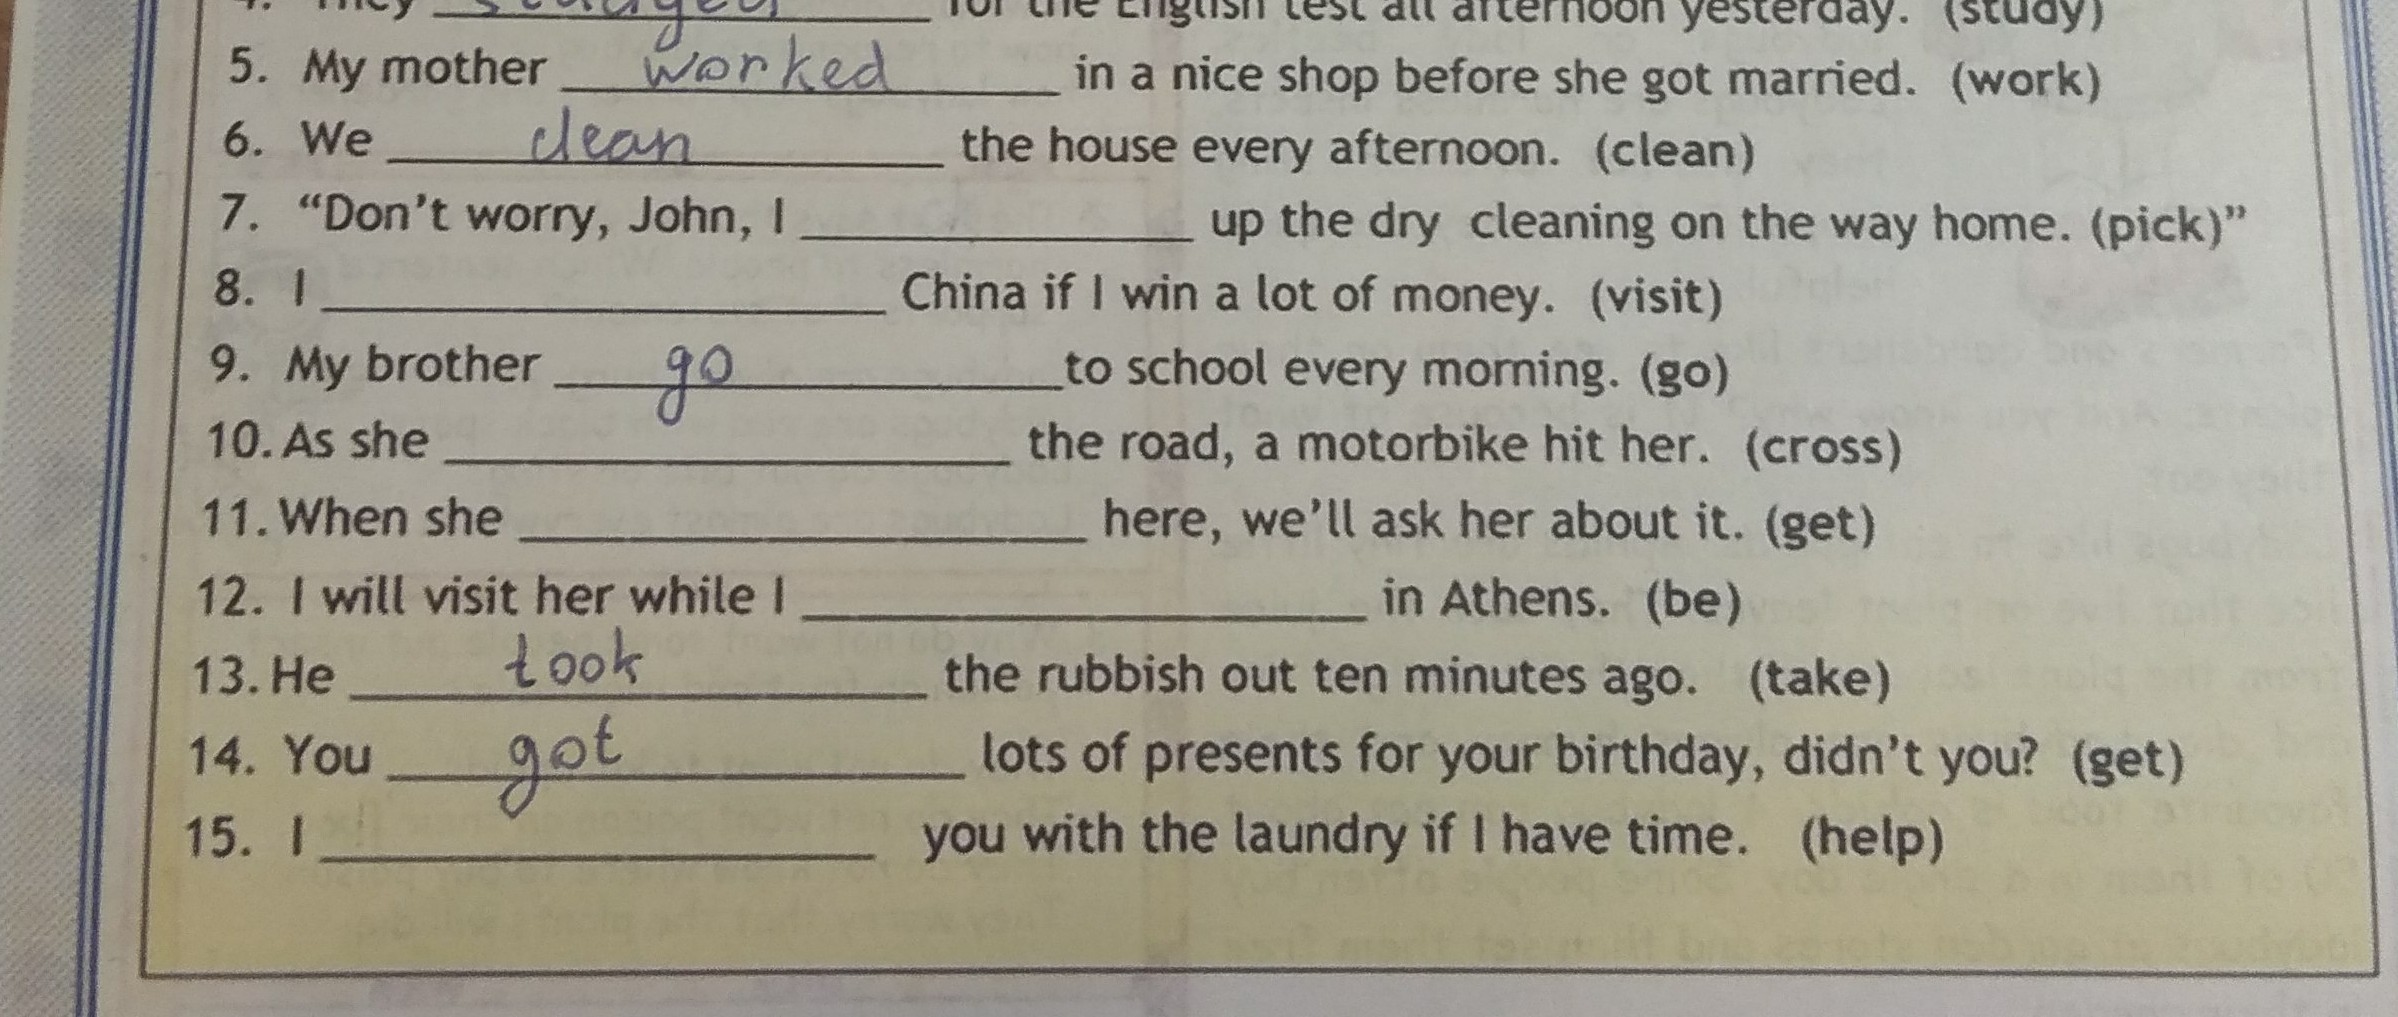 4. They studyed for the English test all afternoon yesterday. (study)
5. My mother worked in a nice shop before she got married. (work)
6. We clean the house every afternoon. (clean)
7. "Don't worry, John, I ____ up the dry cleaning on the way home. (pick)"
8. I ____ China if I win a lot of money. (visit)
9. My brother go to school every morning. (go)
10. As she ____ the road, a motorbike hit her. (cross)
11. When she ____ here, we'll ask her about it. (get)
12. I will visit her while I ____ in Athens. (be)
13. He took the rubbish out ten minutes ago. (take)
14. You got lots of presents for your birthday, didn't you? (get)
15. I ____ you with the laundry if I have time. (help)